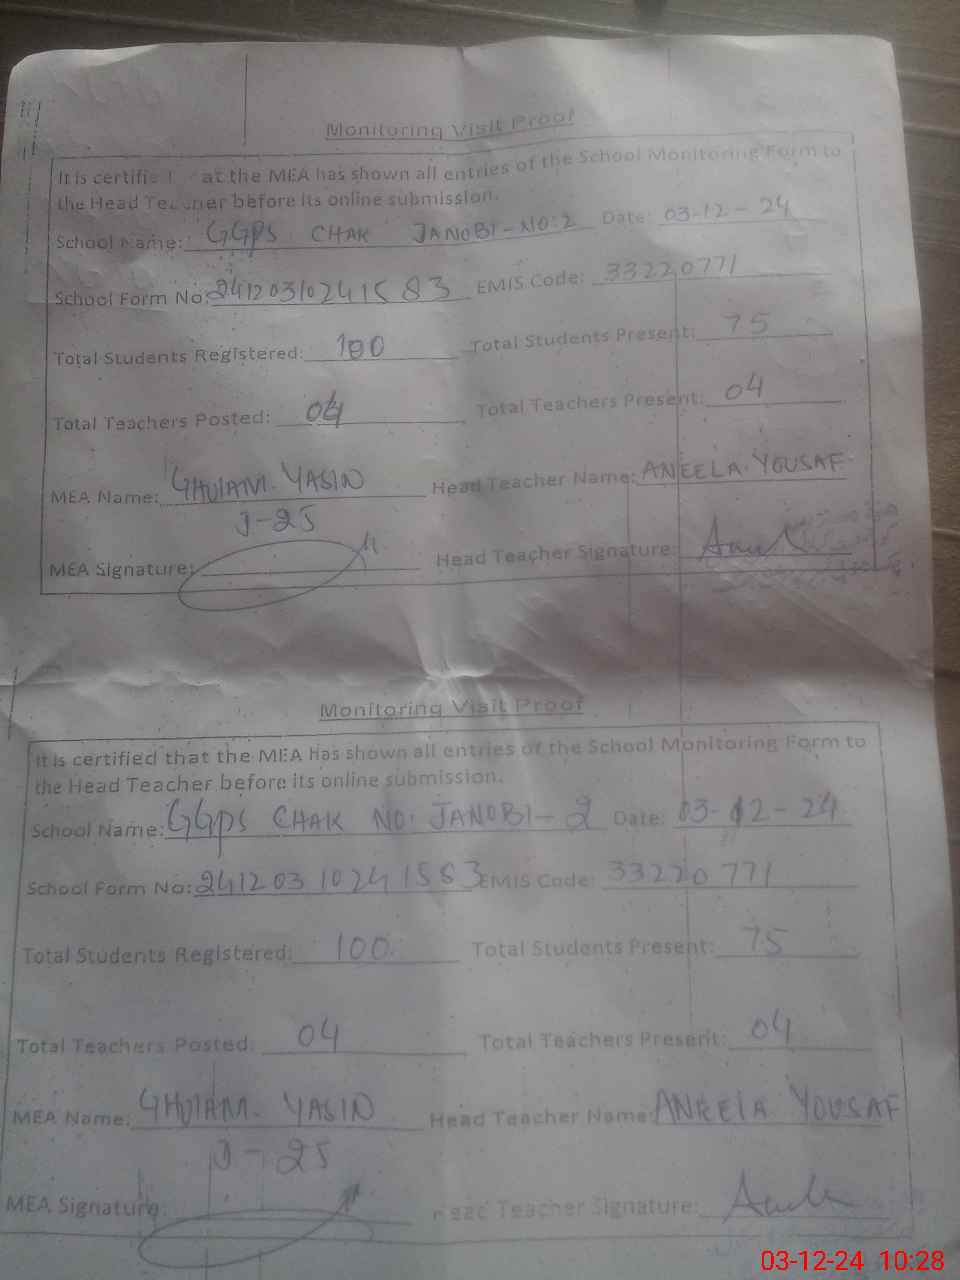 Monitoring Visit Proof
It is certifie at the MEA has shown all entries of the School Monitoring Form to
the Head Teacher before its online submission.
School Name: GGPS CHAK JANOBI-NO:2 Date: 03-12-24
School Form No: 2412031024 1583 EMIS Code: 33220771
Total Students Registered: 100 Total Students Present: 75
Total Teachers Posted: 04 Total Teachers Present: 04
MEA Name: GHULAM. YASIN Head Teacher Name: ANEELA. YOUSAF
J-25
MEA Signature: Head Teacher Signature:
Monitoring Visit Proof
It is certified that the MEA Has shown all entries of the School Monitoring Form to
the Head Teacher before its online submission.
School Name: GGPS CHAK NO. JANOBI-2 Date: 03-12-24
School Form No: 2412031024 1583 EMIS Code: 33220771
Total Students Registered: 100 Total Students Present: 75
Total Teachers Posted: 04 Total Teachers Present: 04
MEA Name: GHULAM. YASIN Head Teacher Name: ANEELA YOUSAF
J-25
MEA Signature: Head Teacher Signature:
03-12-24 10:28